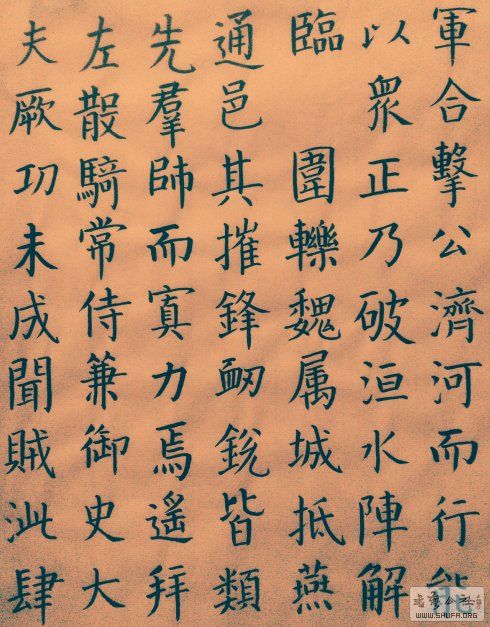 軍合擊公濟河而行能
以衆正乃破洹水陣解
臨圍轢魏属城抵燕
通邑其摧鋒衂銳皆類
先羣帥而寘力焉遙拜
左散騎常侍兼御史大
夫厥功未成聞賊泚肆
www.SHUFA.ORG